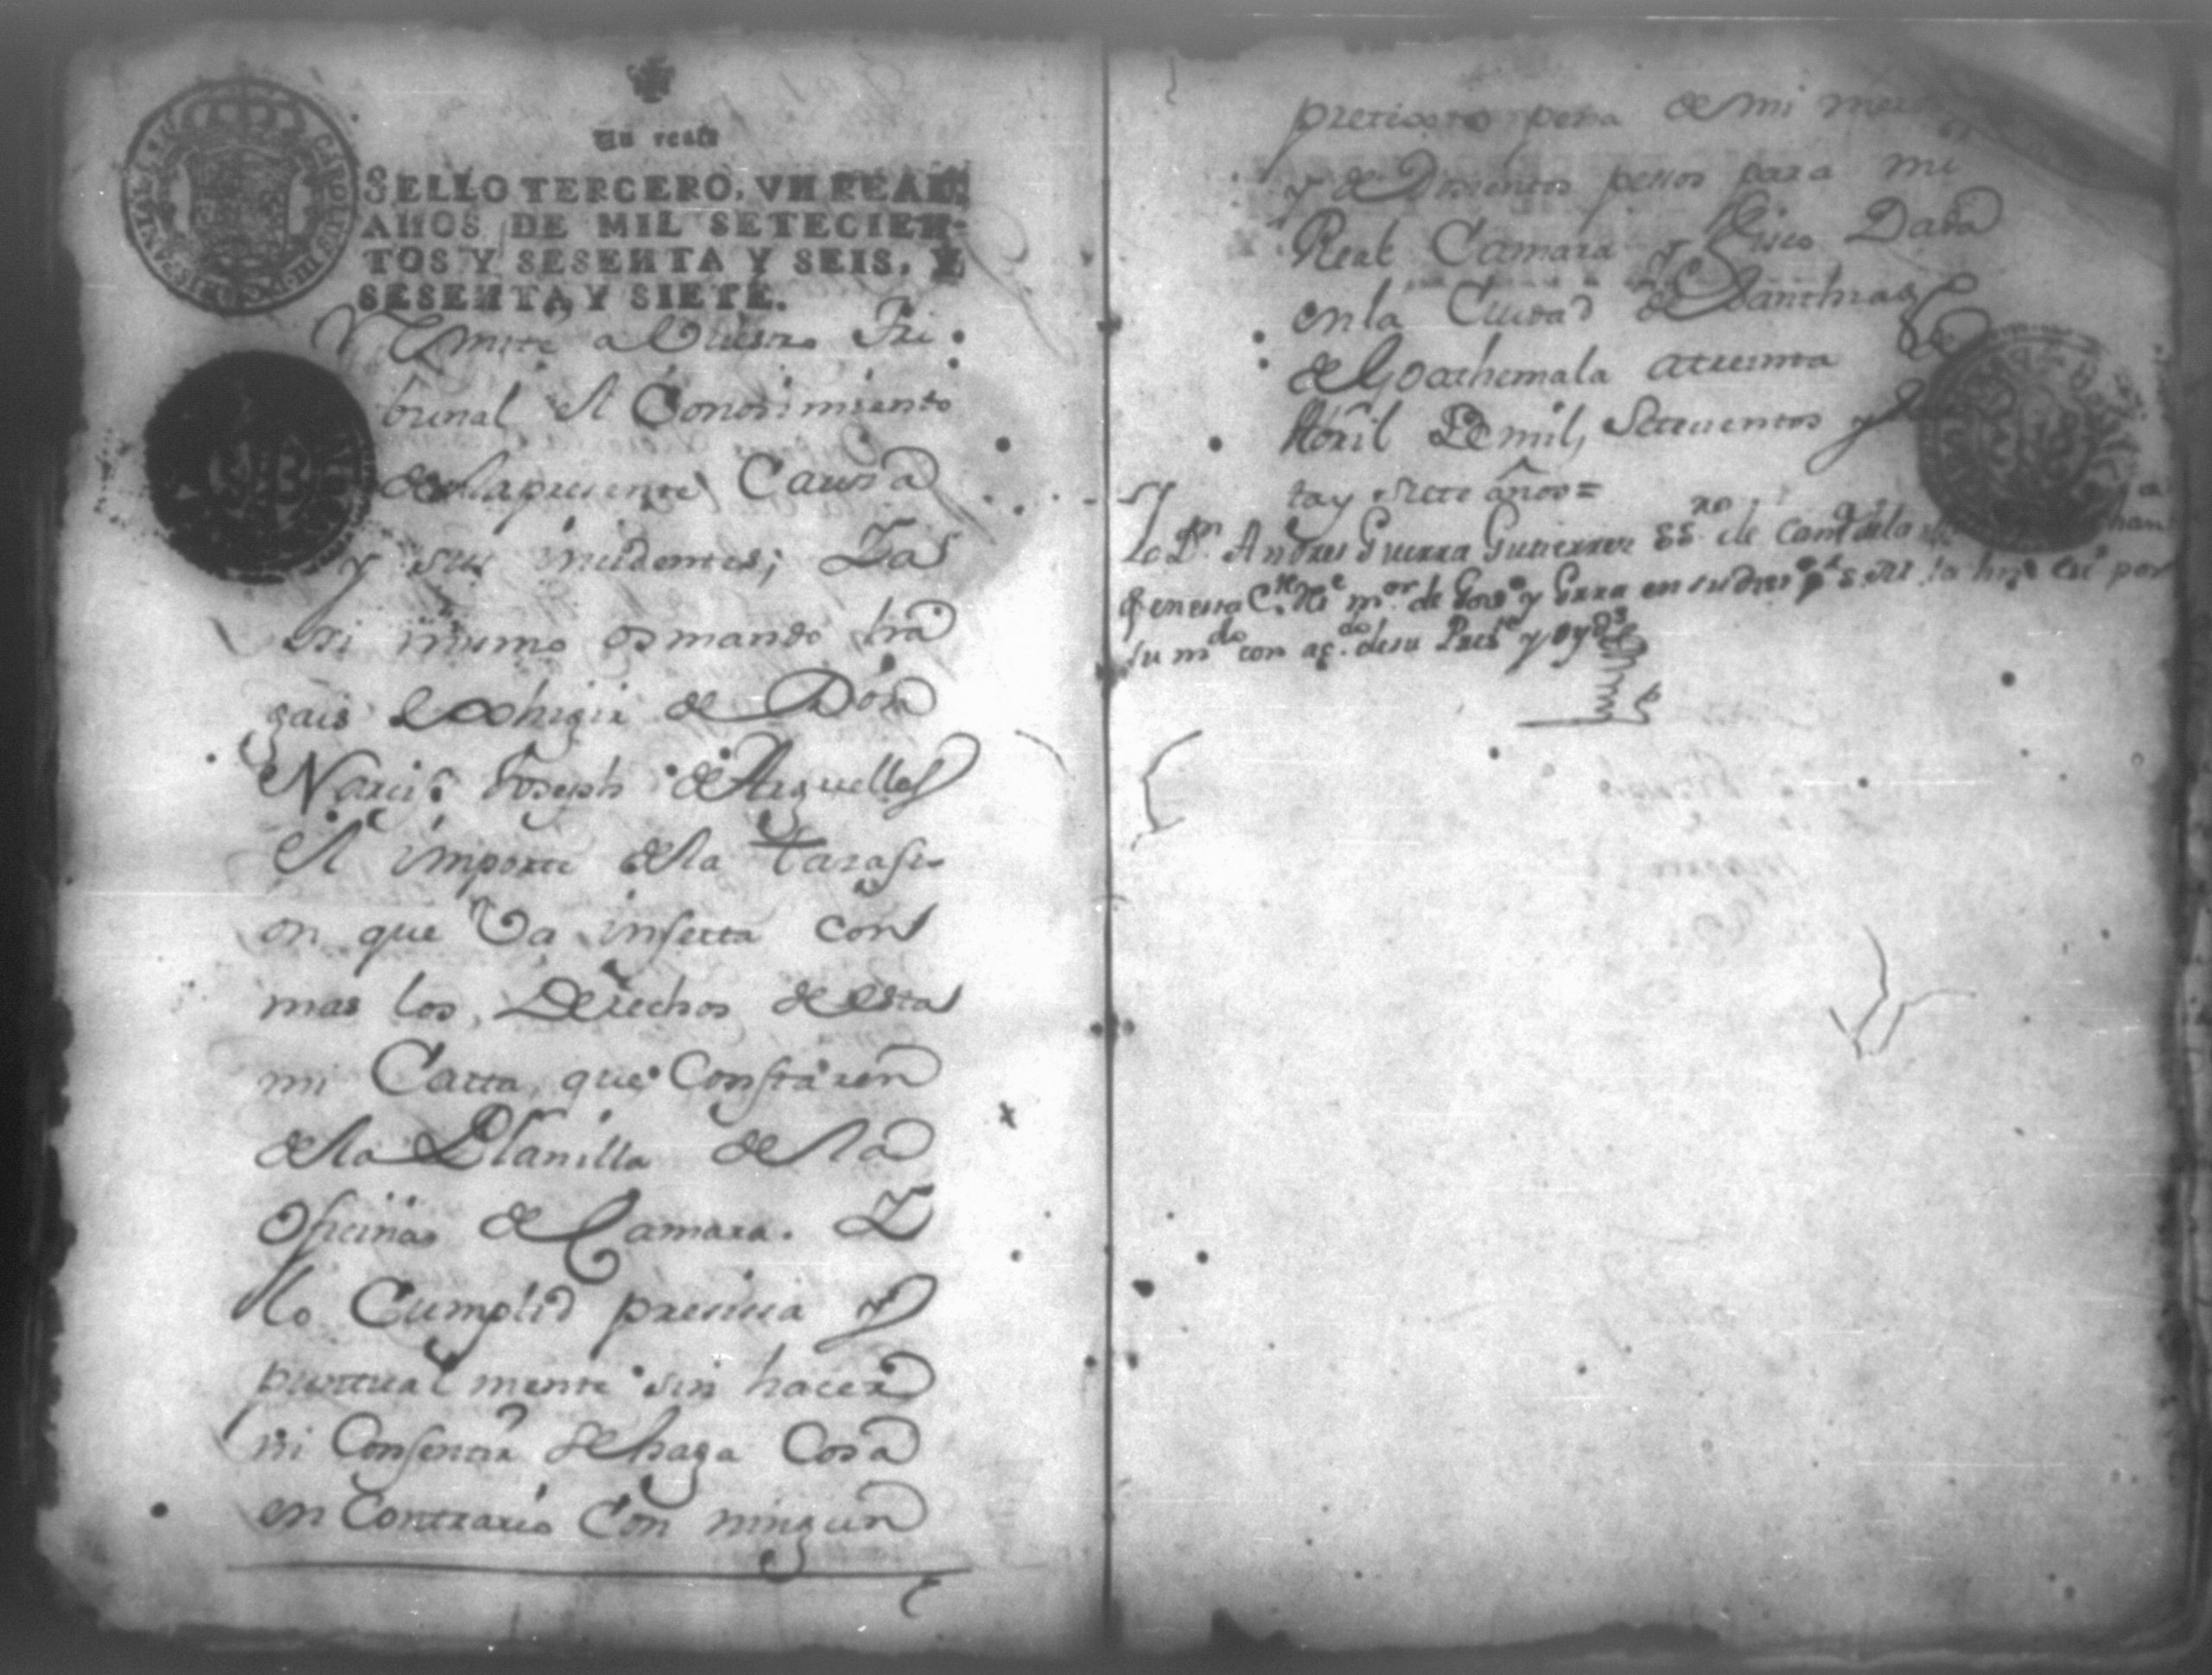 Un real
SELLO TERCERO, VN REAL,
AÑOS DE MIL SETECIEN-
TOS Y SESENTA Y SEIS, Y
SESENTA Y SIETE.
a Vuestro Tri
bunal el Conosimiento
de la presente Causa
y sus insidentes; Y as
si mismo os mando ha
gais exhigir de Don
Narciso Joseph de Arguelles
el importe de la tasasi
on que Va inserta con
mas los Derechos de esta
mi Carta, que Constaren
de la Planilla de la
Oficina de Camara. Y
lo Cumplid presisa y
puntual mente sin hacer
ni Consentir se haga Cosa
en Contrario Con ningun
pretexto pena de mi
y de Dosientos pesos para mi
Real Camara y Fisco Dada
en la Ciudad de Santhiago
de Goathemala a treinta
Abril De mil, Setecientos y
ta y siete años=
Yo Dn. Andres Guerra Gutierrez SSno. de Camª del
su mdo. con ac.do de su Preste y Oyds